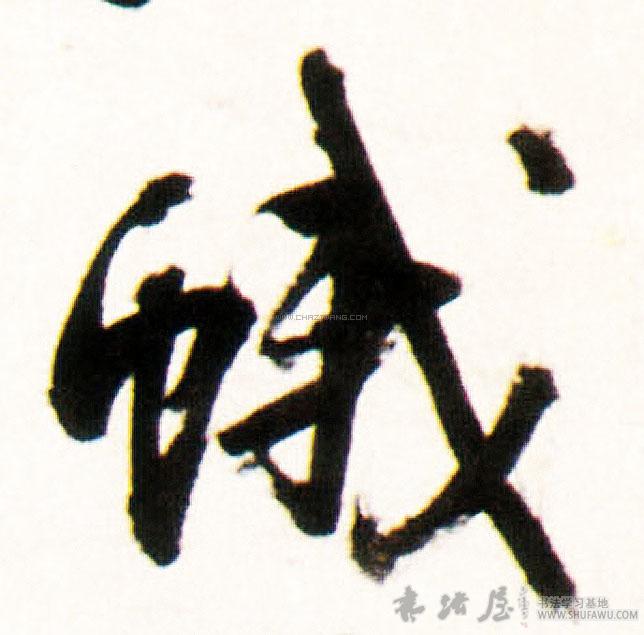 蛾
WWW.CHAZIWANG.COM
书法屋
书法学习基地
WWW.SHUFAWU.COM